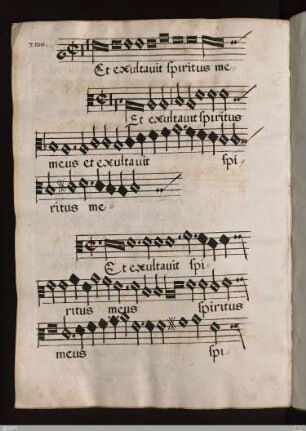 Et exultauit spiritus me
Et exultauit spiritus
meus et exultauit spi
ritus me
Et exultauit spi
ritus meus spiritus
meus spi